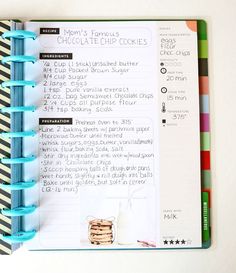 RECIPE Mom's Famous
CHOCOLATE CHIP COOKIES
INGREDIENTS
3/4 Cup (1 stick) unsalted butter
3/4 Cup Packed Brown Sugar
3/4 Cup Sugar
2 large eggs
1 tsp pure vanilla extract
12 oz. bag Semisweet Chocolate Chips
2 1/4 Cups all purpose flour
3/4 tsp baking soda
PREPARATION Preheat Oven to 375°
Line 2 baking sheets w/ parchment paper
Microwave butter until melted
Whisk sugars, eggs, butter, vanilla
Whisk flour, baking soda, salt
Stir dry ingredients into wet w/ wood spoon
Stir in Chocolate Chips
Scoop heaping balls of dough onto pans
Wet hands slightly & roll dough into balls
Bake until golden, but soft in center
Eggs
Flour
Choc. Chips
20 min
15 min
375°
MILK
MISCELLANEOUS